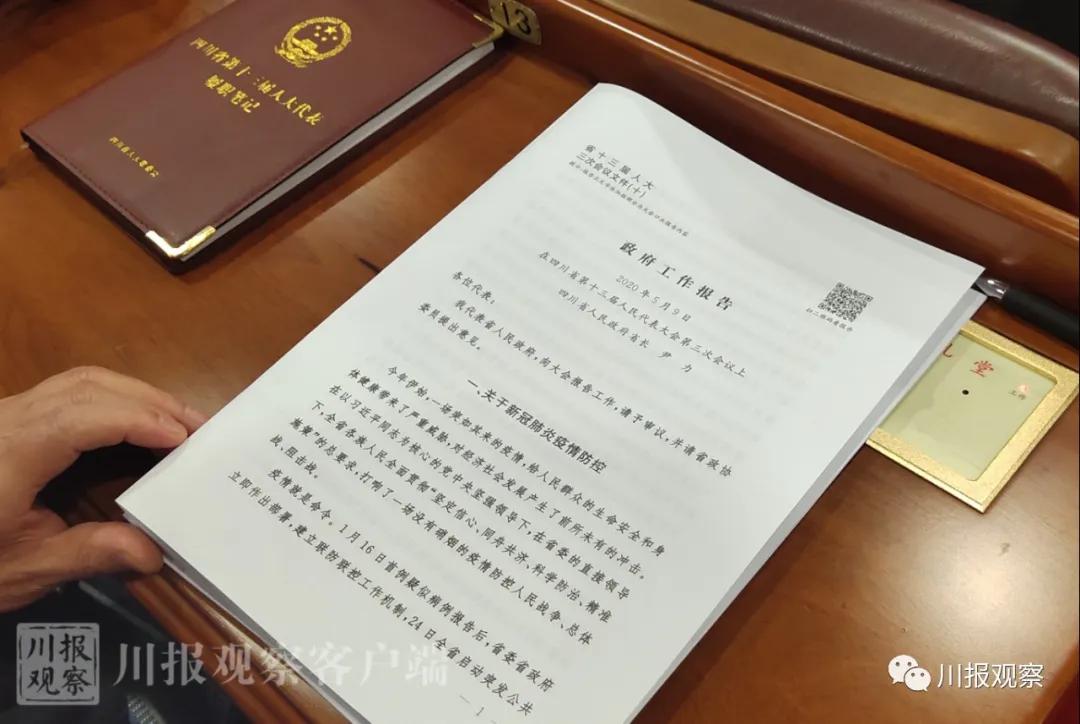 13
四川省第十三届人大代表
履职笔记
四川省人大常委会
省十三届人大
三次会议文件(十)
政府工作报告
2020年5月9日
在四川省第十三届人民代表大会第三次会议上
四川省人民政府省长 尹 力
扫二维码看报告
各位代表:
我代表省人民政府,向大会报告工作,请予审议,并请省政协
委员提出意见。
一、关于新冠肺炎疫情防控
今年伊始,一场突如其来的疫情,给人民群众的生命安全和身
体健康带来了严重威胁,对经济社会发展产生了前所未有的冲击。
在以习近平同志为核心的党中央坚强领导下,在省委的直接领导
下,全省各族人民全面贯彻“坚定信心、同舟共济、科学防治、精准
施策”的总要求,打响了一场没有硝烟的疫情防控人民战争、总体
战、阻击战。
疫情就是命令。1月16日首例疑似病例报告后,省委省政府
立即作出部署,建立联防联控工作机制,24日全省启动突发公共
— 1
堂
工作
川报
观察
川报观察客户端
川报观察